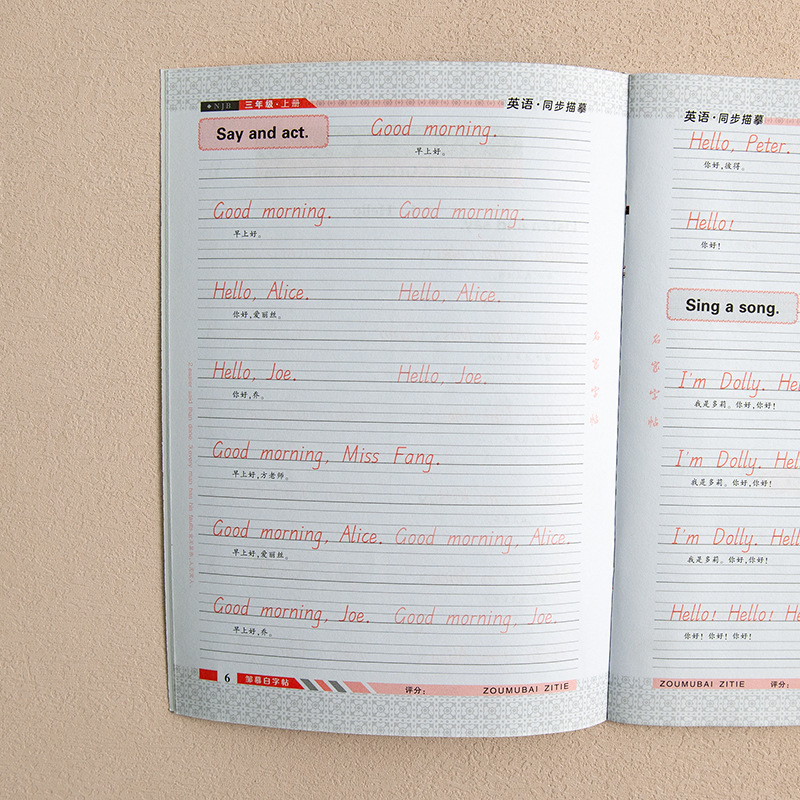 ◆NJB 三年级·上册 英语·同步描摹
Say and act. Good morning.
早上好。
Good morning. Good morning.
早上好。
Hello, Alice. Hello, Alice.
你好,爱丽丝。
Hello, Joe. Hello, Joe.
你好,乔。
Good morning, Miss Fang.
早上好,方老师。
Good morning, Alice. Good morning, Alice.
早上好,爱丽丝。
Good morning, Joe. Good morning, Joe.
早上好,乔。
名
家
字
帖
6 邹慕白字帖 评分: ZOUMUBAI ZITIE
英语·同步描摹
Hello, Peter.
你好,彼得。
Hello!
你好!
Sing a song.
名
家
字
帖
I'm Dolly. Hel
我是多莉。你好,你好!
I'm Dolly. Hel
我是多莉。你好,你好!
I'm Dolly. Hell
我是多莉。你好,你好!
Hello! Hello! He
你好! 你好! 你好!
ZOUMUBAI ZITIE 评分: